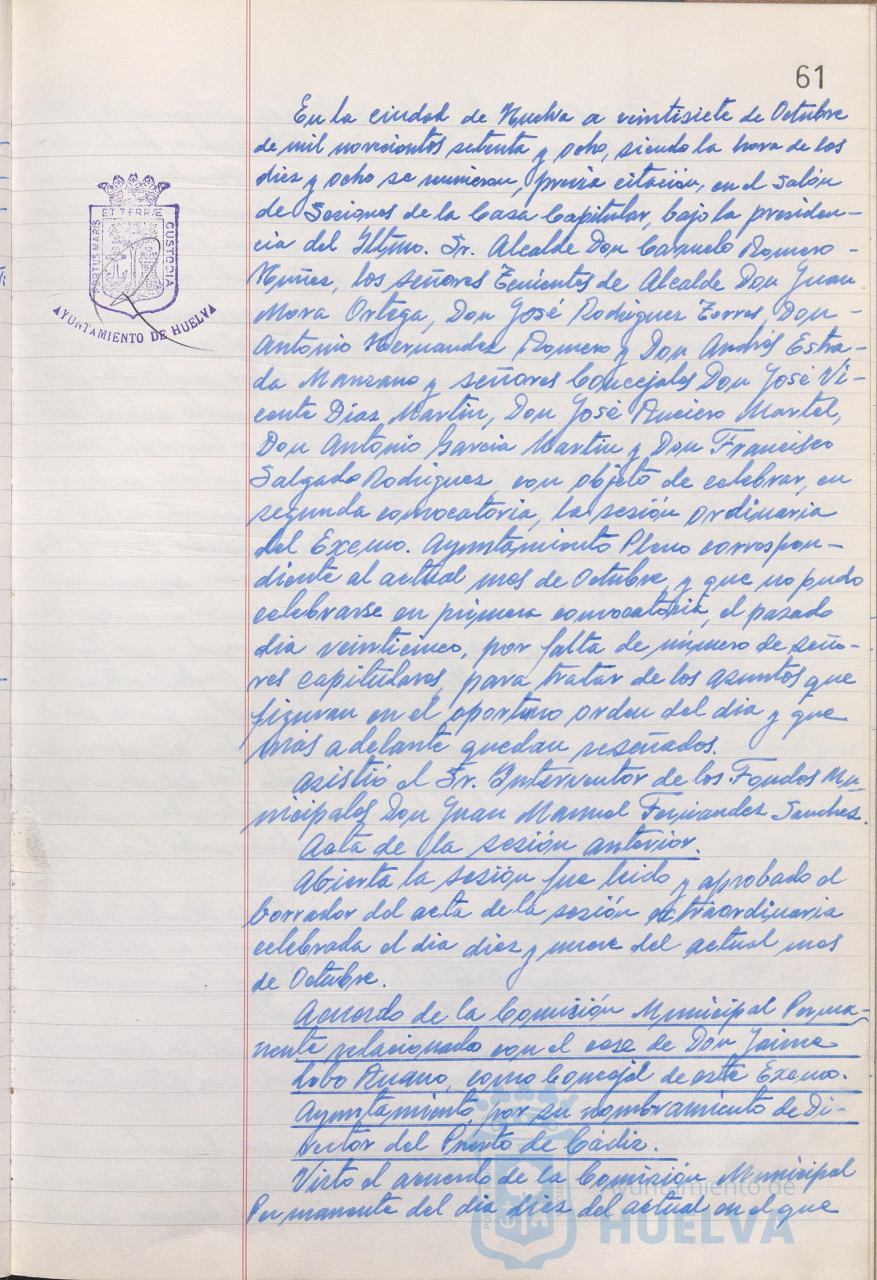 61
En la ciudad de Huelva a veintisiete de Octubre
de mil novecientos setenta y ocho, siendo la hora de las
diez y ocho se reunieron, previa citación, en el Salón
de Sesiones de la Casa Capitular, bajo la presiden-
cia del Iltmo. Sr. Alcalde Don Carmelo Romero
Nuñez, los señores Tenientes de Alcalde Don Juan
Mora Ortega, Don José Rodriguez Torres, Don
Antonio Hernandez Romero y Don Andrés Estra-
da Manzano y señores Concejales Don José Vi-
cente Diaz Martin, Don José Martel,
Don Antonio Garcia Martin y Don Francisco
Salgado Rodriguez, con objeto de celebrar, en
segunda convocatoria, la sesión ordinaria
del Excmo. Ayuntamiento Pleno correspon-
diente al actual mes de Octubre, y que no pudo
celebrarse en primera convocatoria, el pasado
dia veinticinco, por falta de número de seño-
res capitulares, para tratar de los asuntos que
figuran en el oportuno orden del dia y que
mas adelante quedan reseñados.
Asistió el Sr. Interventor de los Fondos Mu-
nicipales Don Juan Manuel Fernandez Sanchez.
Acta de la sesión anterior.
Abierta la sesión fue leido y aprobado el
borrador del acta de la sesión extraordinaria
celebrada el dia diez y nueve del actual mes
de Octubre.
Acuerdo de la Comisión Municipal Perma-
nente relacionado con el cese de Don Jaime
Lobo, como Concejal de este Excmo.
Ayuntamiento, por su nombramiento de Di-
rector del Puerto de Cádiz.
Visto el acuerdo de la Comisión Municipal
Permanente del dia diez del actual en el que
PORTUS MARIS ET TERRÆ CUSTODIA
AYUNTAMIENTO DE HUELVA
Ayuntamiento de
HUELVA